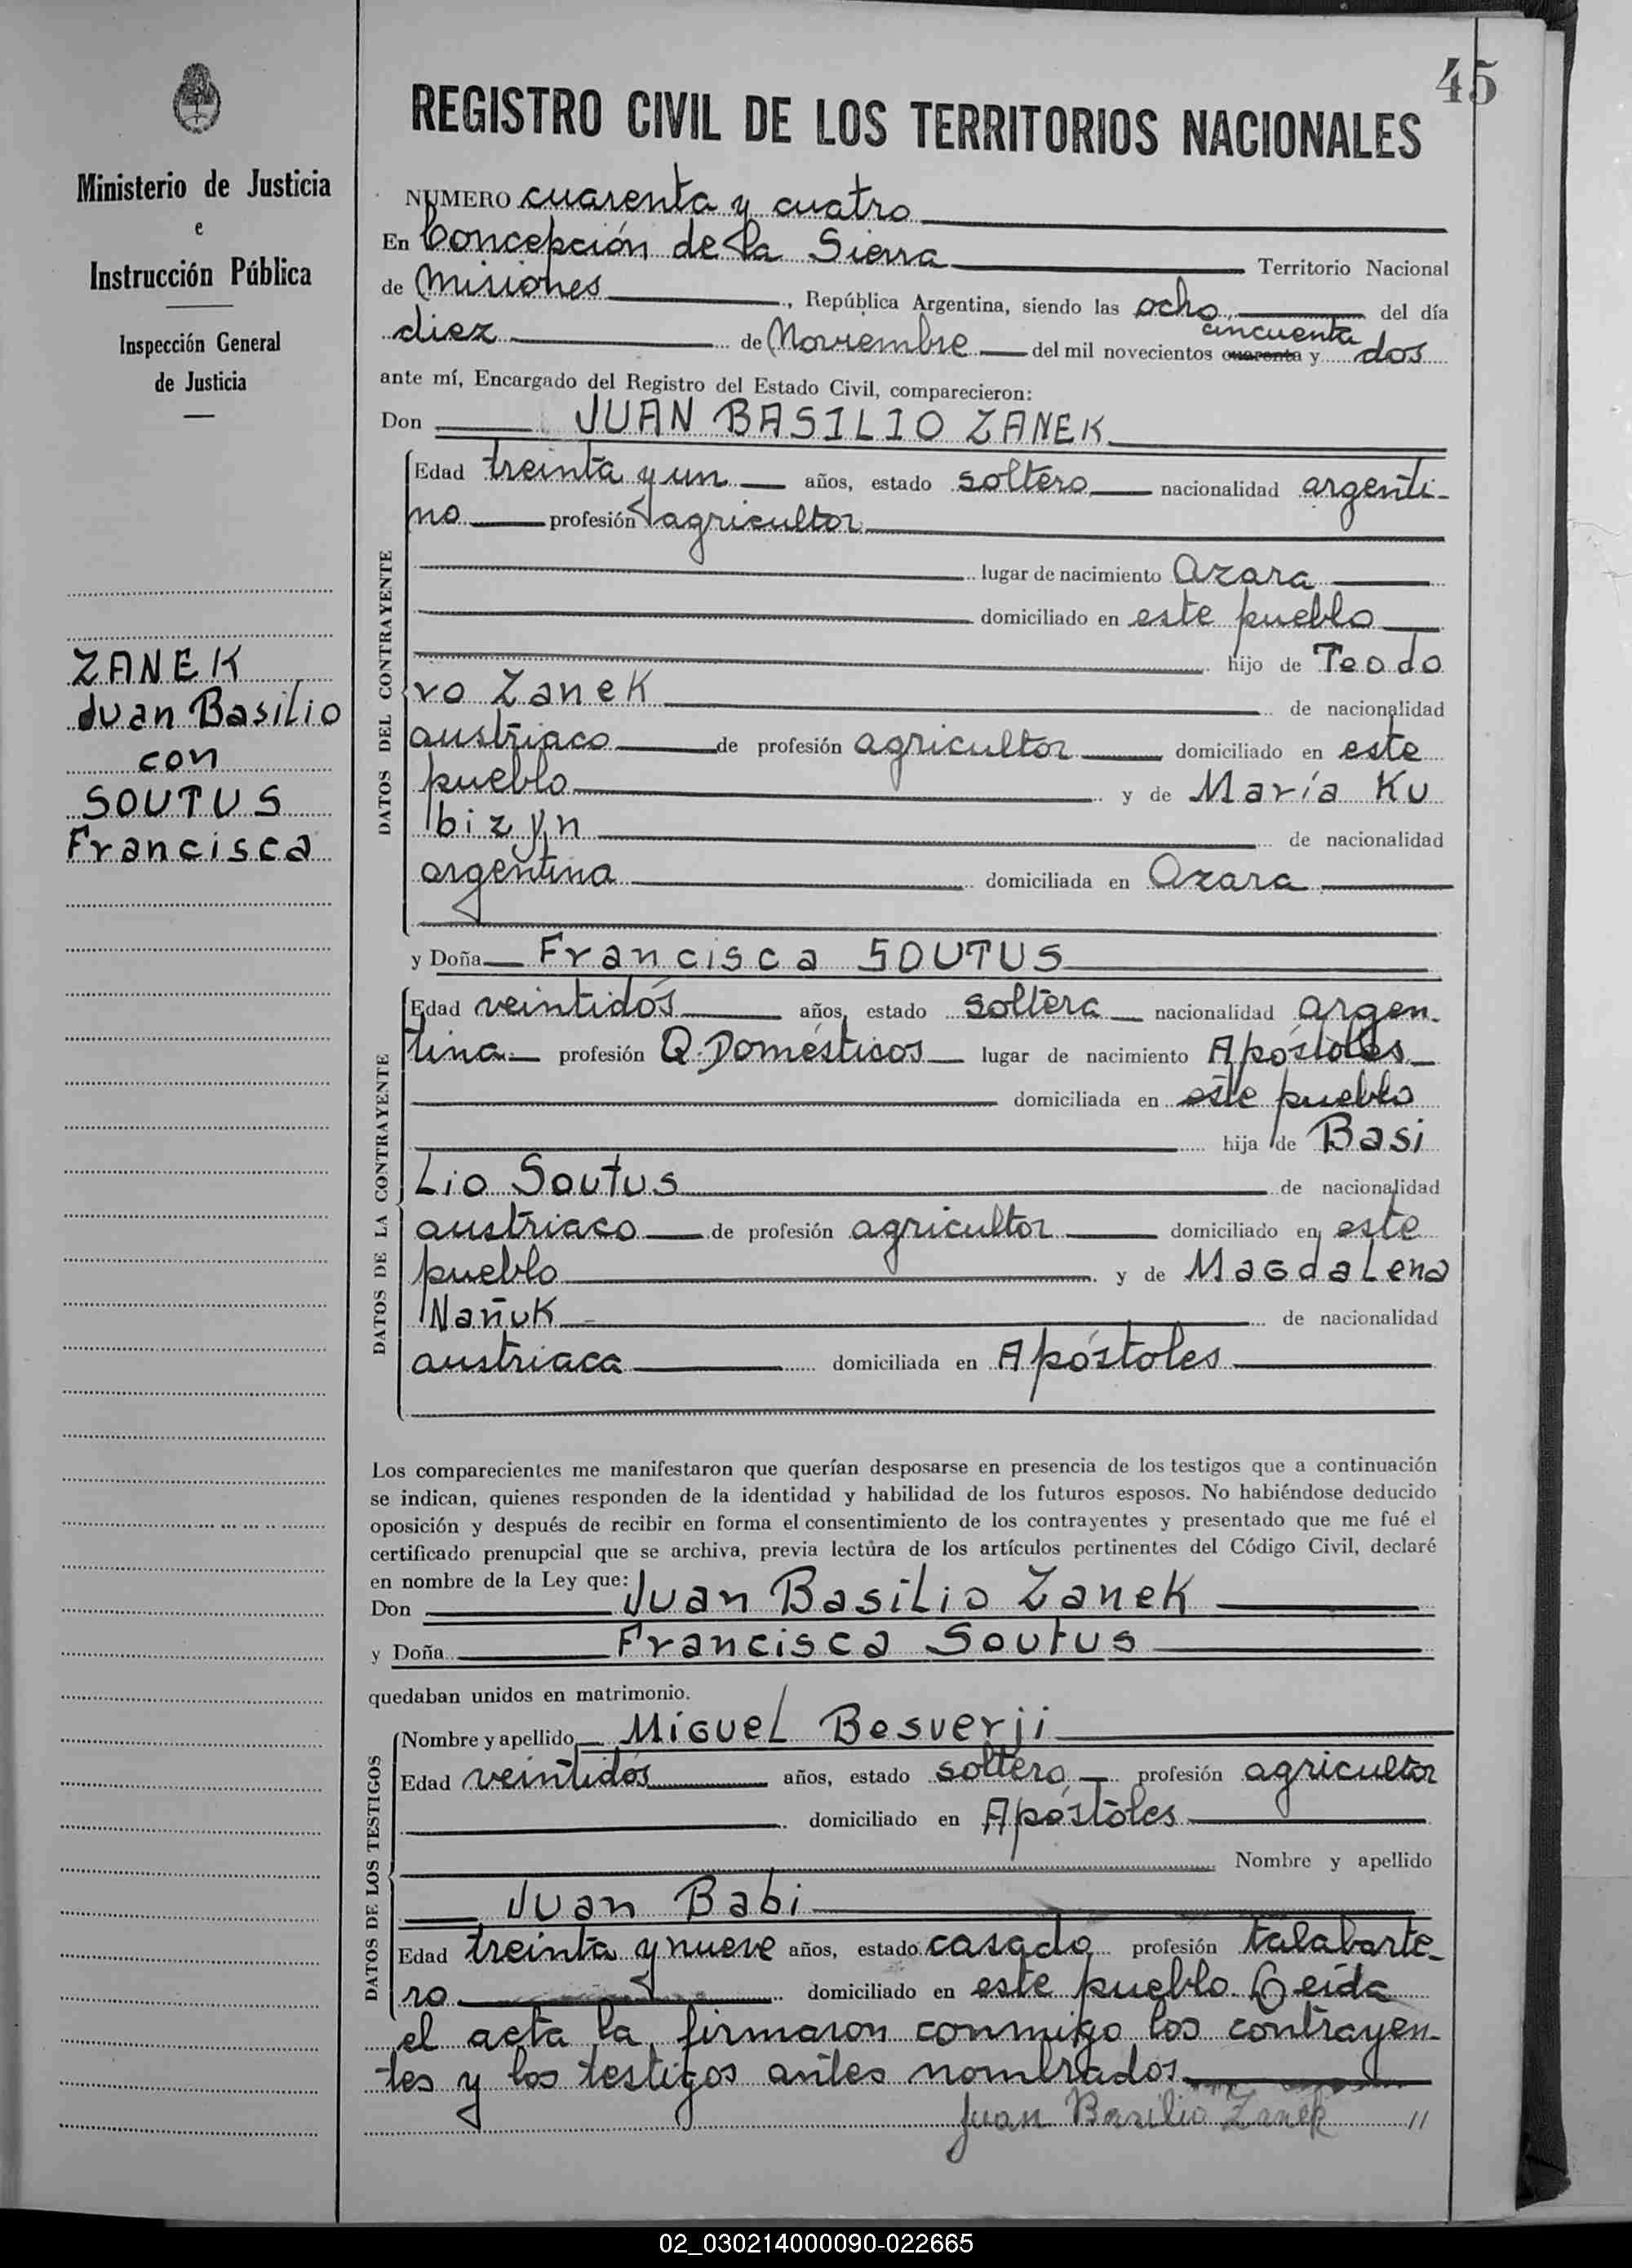 45
Ministerio de Justicia
e
Instrucción Pública
Inspección General
de Justicia
ZANEK
Juan Basilio
con
SOUTUS
Francisca
REGISTRO CIVIL DE LOS TERRITORIOS NACIONALES
NUMERO cuarenta y cuatro
En Concepción de la Sierra Territorio Nacional
de Misiones, República Argentina, siendo las ocho del día
cincuenta
diez de Noviembre del mil novecientos cuarenta y dos
ante mí, Encargado del Registro del Estado Civil, comparecieron:
Don JUAN BASILIO ZANEK
DATOS DEL CONTRAYENTE
Edad treinta y un años, estado soltero nacionalidad argenti-
no profesión agricultor
lugar de nacimiento Azara
domiciliado en este pueblo
hijo de Teodo
ro Zanek de nacionalidad
austriaco de profesión agricultor domiciliado en este
pueblo y de María Ku
bizyn de nacionalidad
argentina domiciliada en Azara
y Doña Francisca SOUTUS
DATOS DE LA CONTRAYENTE
Edad veintidós años, estado soltera nacionalidad argen-
tina profesión Q. Domésticos lugar de nacimiento Apóstoles
domiciliada en este pueblo
hija de Basi
Lio Soutus de nacionalidad
austriaco de profesión agricultor domiciliado en este
pueblo y de MaGdaLena
Nañuk de nacionalidad
austriaca domiciliada en Apóstoles
Los comparecientes me manifestaron que querían desposarse en presencia de los testigos que a continuación
se indican, quienes responden de la identidad y habilidad de los futuros esposos. No habiéndose deducido
oposición y después de recibir en forma el consentimiento de los contrayentes y presentado que me fué el
certificado prenupcial que se archiva, previa lectura de los artículos pertinentes del Código Civil, declaré
en nombre de la Ley que:
Don Juan BasiLio Zanek
y Doña Francisca Soutus
quedaban unidos en matrimonio.
DATOS DE LOS TESTIGOS
Nombre y apellido MiGueL Besverji
Edad veintidós años, estado soltero profesión agricultor
domiciliado en Apóstoles
Nombre y apellido
Juan Babi
Edad treinta y nueve años, estado casado profesión talabarte-
ro domiciliado en este pueblo. Leída
el acta la firmaron conmigo los contrayen-
tes y los testigos antes nombrados
Juan Basilio Zanek //
02_030214000090-022665